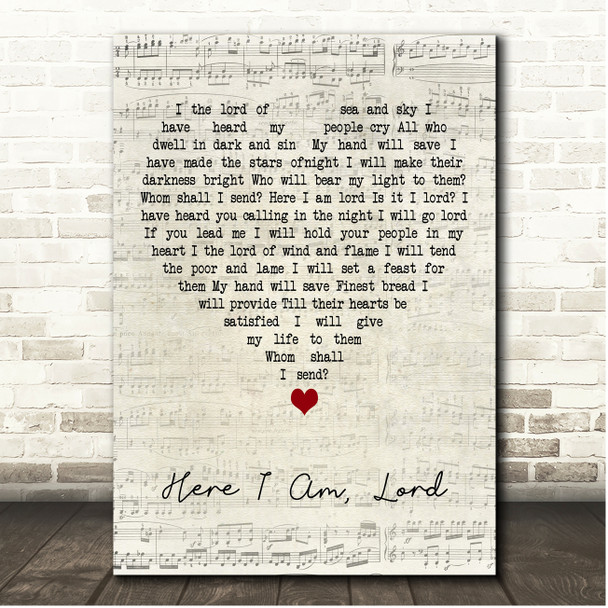 I the lord of sea and sky I
have heard my people cry All who
dwell in dark and sin My hand will save I
have made the stars ofnight I will make their
darkness bright Who will bear my light to them?
Whom shall I send? Here I am lord Is it I lord? I
have heard you calling in the night I will go lord
If you lead me I will hold your people in my
heart I the lord of wind and flame I will tend
the poor and lame I will set a feast for
them My hand will save Finest bread I
will provide Till their hearts be
satisfied I will give
my life to them
Whom shall
I send?
Here I Am, Lord